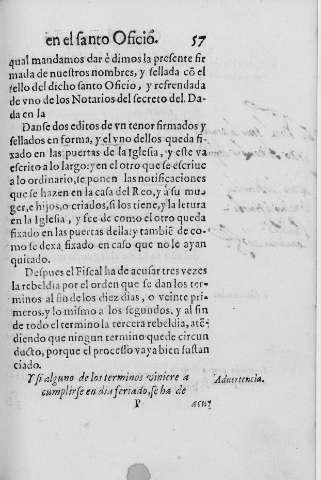 en el santo Oficiõ. 57
qual mandamos dar è dimos la presente fir
mada de nuestros nombres, y sellada cõ el
sello del dicho santo Oficio, y refrendada
de vno de los Notarios del secreto del. Da-
da en la
Danse dos editos de vn tenor firmados y
sellados en forma, y el vno dellos queda fi-
xado en las puertas de la Iglesia, y este va
escrito a lo largo: y en el otro que se escriue
a lo ordinario, te ponen las notificaciones
que se hazen en la casa del Reo, y à su mu-
ger, e hijos, o criados, si los tiene, y la letura
en la Iglesia, y fee de como el otro queda
fixado en las puertas della: y tambiẽ de co-
mo se dexa fixado en caso que no le ayan
quitado.
Despues el Fiscal ha de acusar tres vezes
la rebeldia por el orden que se dan los ter-
minos al fin de los diez dias, o veinte pri-
meros, y lo mismo a los segundos, y al fin
de todo el termino la tercera rebeldia, atẽ-
diendo que ningun termino quede circun
ducto, porque el processo vaya bien sustan
ciado.
Y si alguno de los terminos viniere a Aduertencia.
cumplirse en dia feriado, se ha de
P acu-